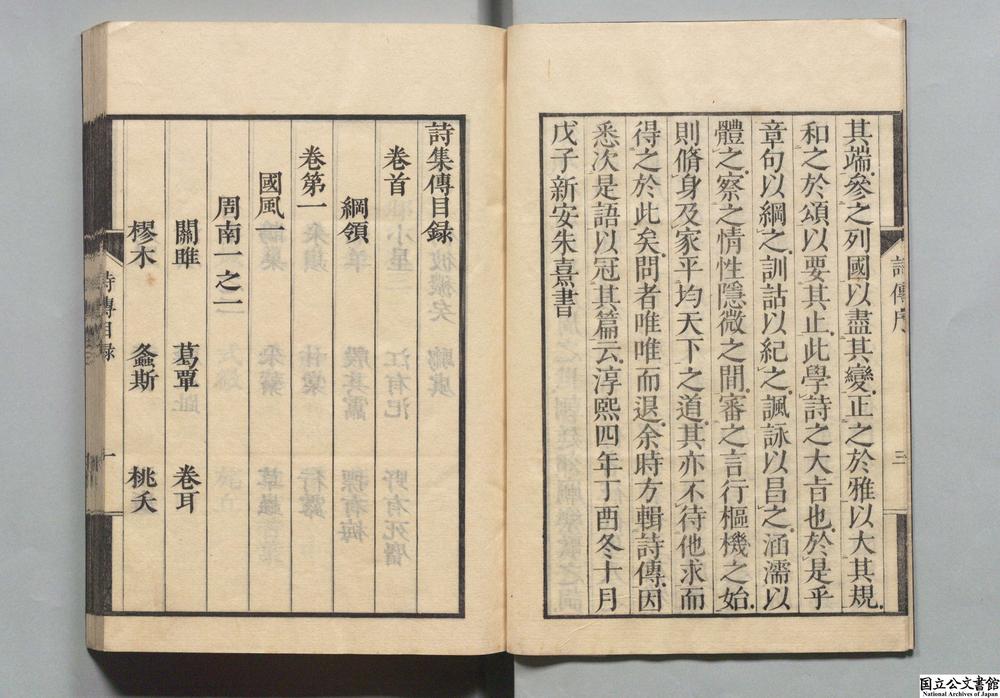 其端參之列國以盡其變正之於雅以大其規
和之於頌以要其止此學詩之大㫖也於是乎
章句以綱之訓詁以紀之諷詠以昌之涵濡以
體之察之情性隱微之間審之言行樞機之始
則脩身及家平均天下之道其亦不待他求而
得之於此矣問者唯唯而退余時方輯詩傳因
悉次是語以冠其篇云淳熙四年丁酉冬十月
戊子新安朱熹書
詩傳序
三
詩集傳目録
卷首
綱領
卷第一
國風一
周南一之一
關雎 葛覃 卷耳
樛木 螽斯 桃夭
詩傳目録
一
国立公文書館
National Archives of Japan